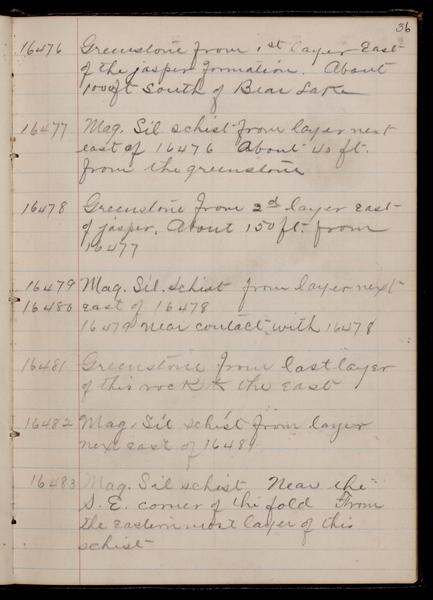 36
16476 Greenstone from 1st layer East
of the jasper formation. About
1000 ft South of Bear Lake
16477 Mag. Sil schist from layer next
east of 16476 About 40 ft.
from the greenstone
16478 Greenstone from 2d layer east
of jasper. About 150 ft from
16477
16479 Mag. Sil. schist from layer next
16480 east of 16478
16479 near contact with 16478
16481 Greenstone from last layer
of this rock to the east
16482 Mag. Sil schist from layer
next east of 16481
16483 Mag. Sil schist Near the
S. E. corner of the fold From
the easternmost layer of this
schist